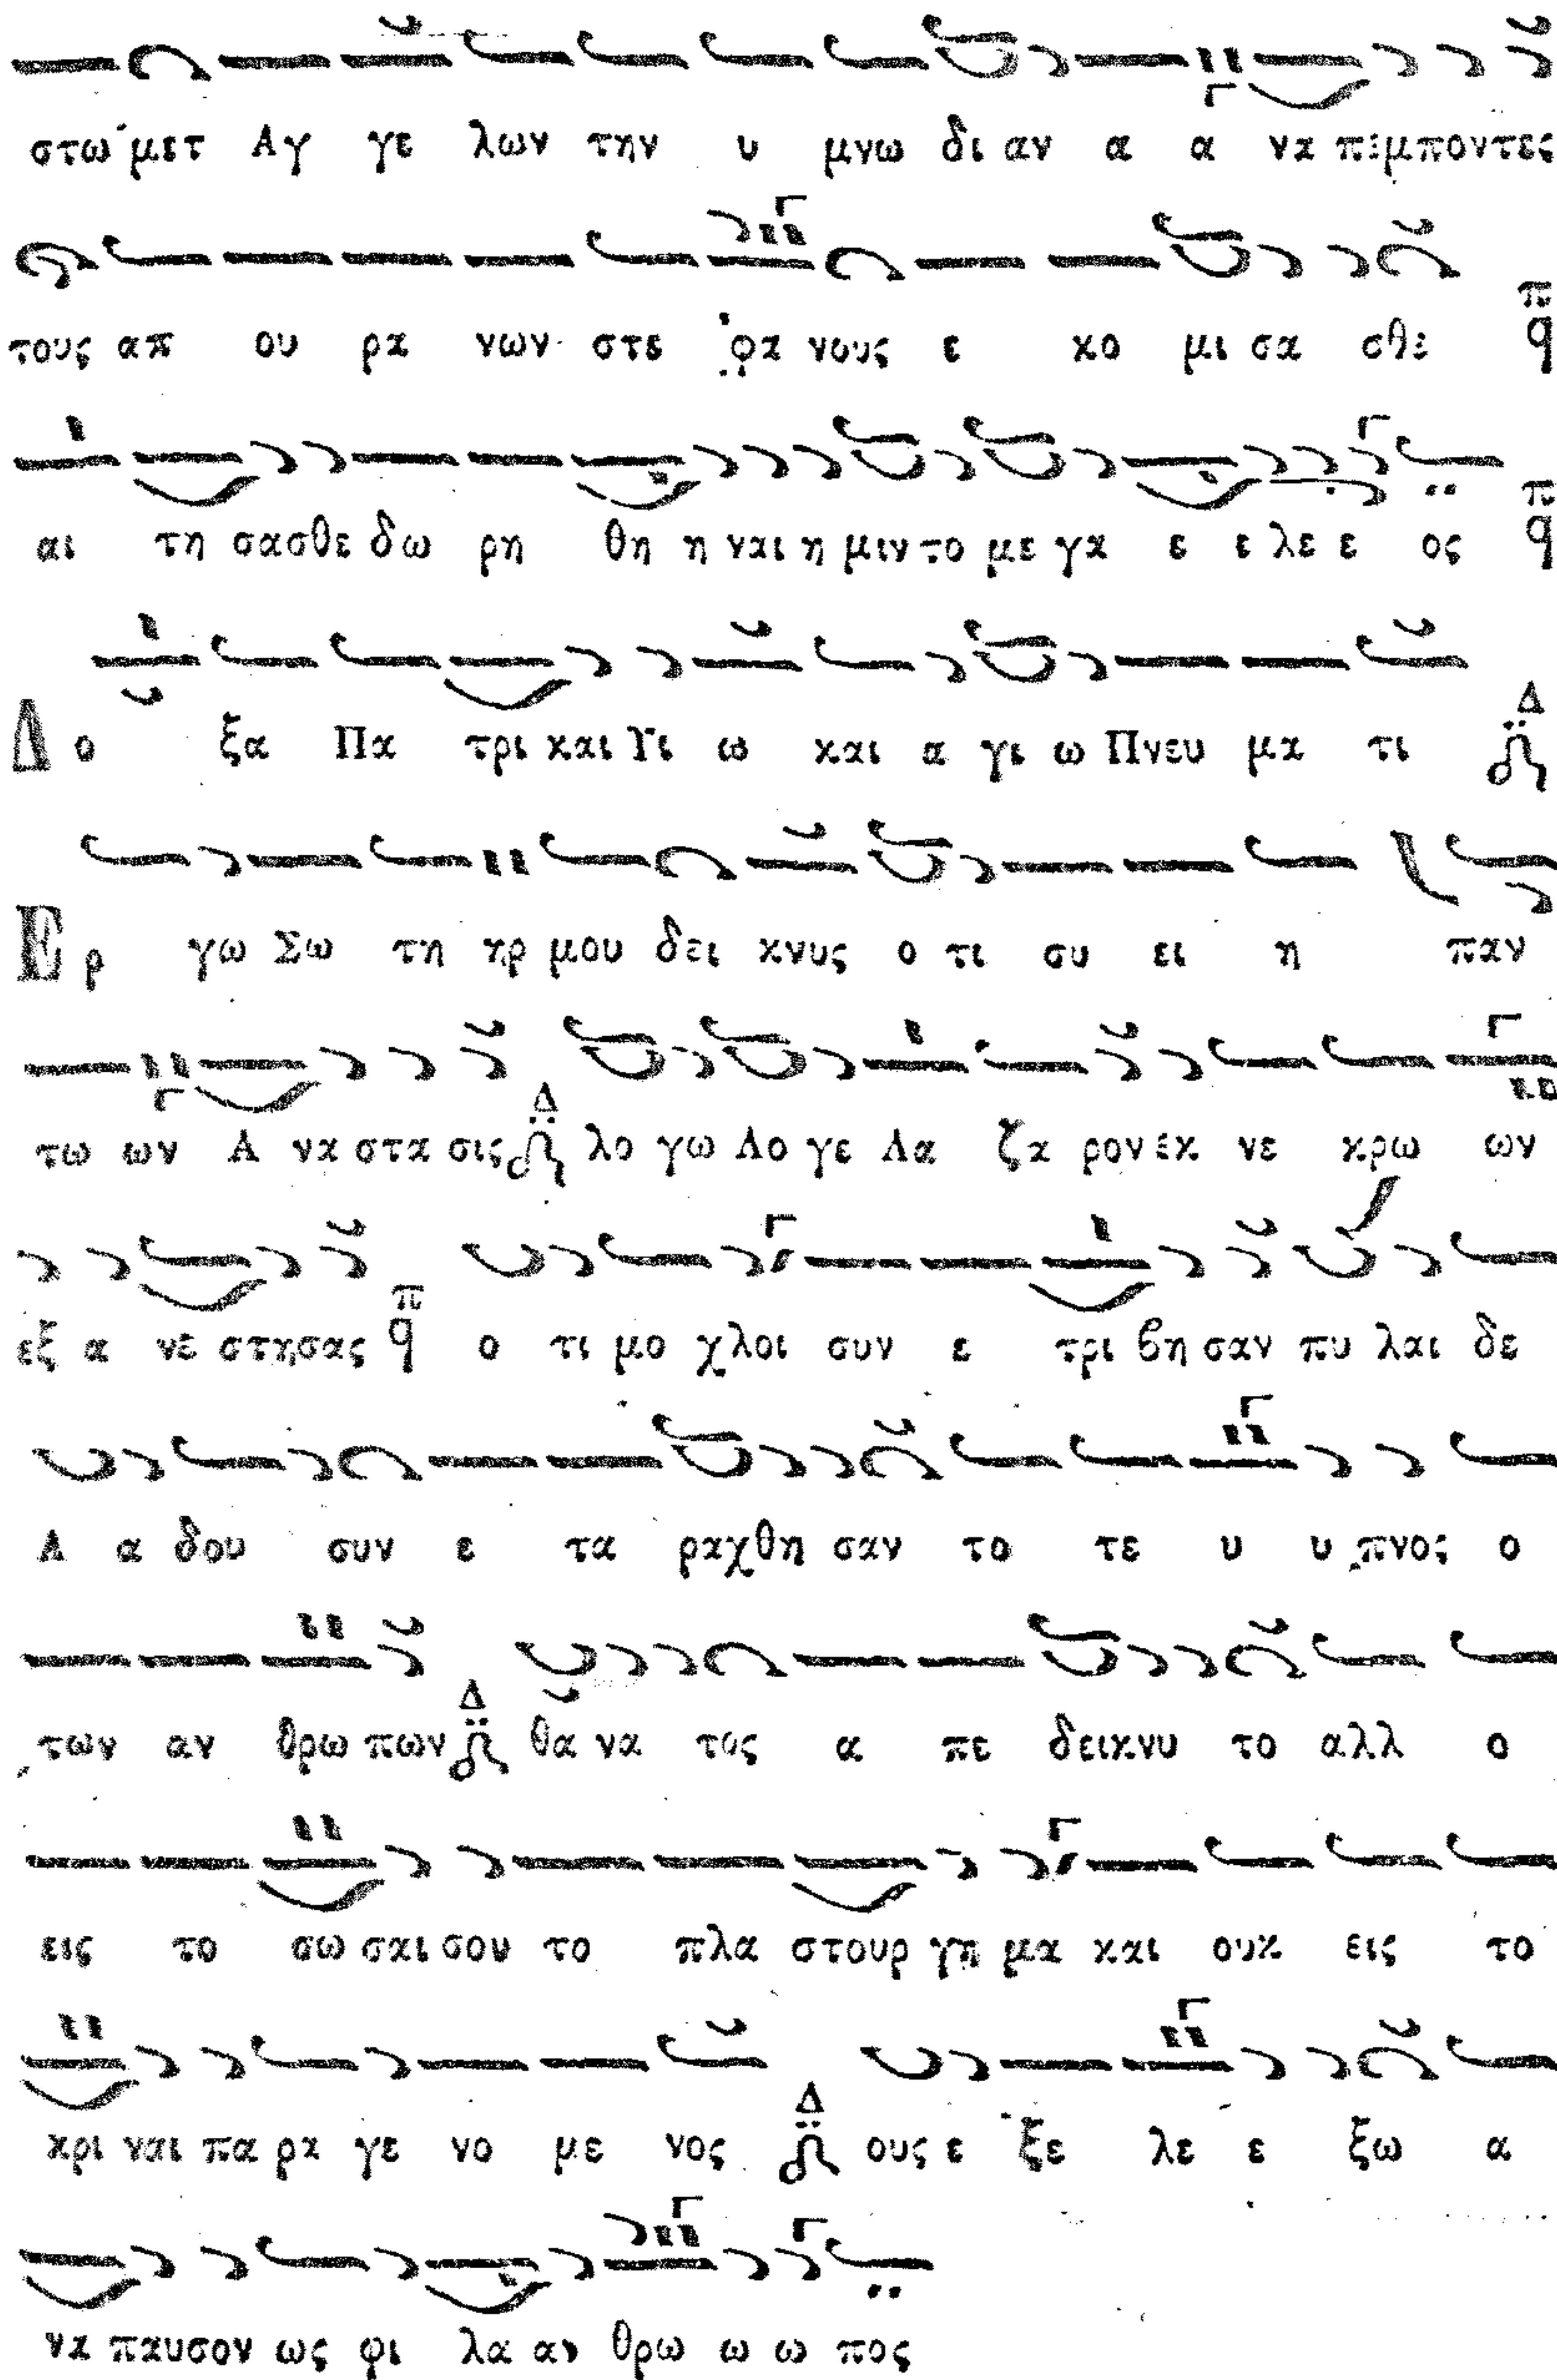 στω μετ Αγ γε λων την υ μνω δι αν α α να πεμποντες
τους απ ου ρα νων στε φα νους ε κο μι σα σθε π q
αι τη σασθε δω ρη θη η ναι η μιν το με γα ε ε λε ε ος π q
Δ ο ξα Πα τρι και Υι ω και α γι ω Πνευ μα τι Δ
Ε ρ γω Σω τη ηρ μου δει κνυς ο τι συ ει η παν
τω ων Α να στα σις Δ λο γω Λο γε Λα ζα ρον εκ νε κρω ων
εξ α νε στησας π q ο τι μο χλοι συν ε τρι βη σαν πυ λαι δε
Α α δου συν ε τα ραχθη σαν το τε υ υ πνος ο
των αν θρω πων Δ θα να τος α πε δεικνυ το αλλ ο
εις το σω σαι σου το πλα στουρ γη μα και ουκ εις το
κρι ναι πα ρα γε νο με νος Δ ους ε ξε λε ε ξω α
να παυσον ως φι λα αν θρω ω ω πος